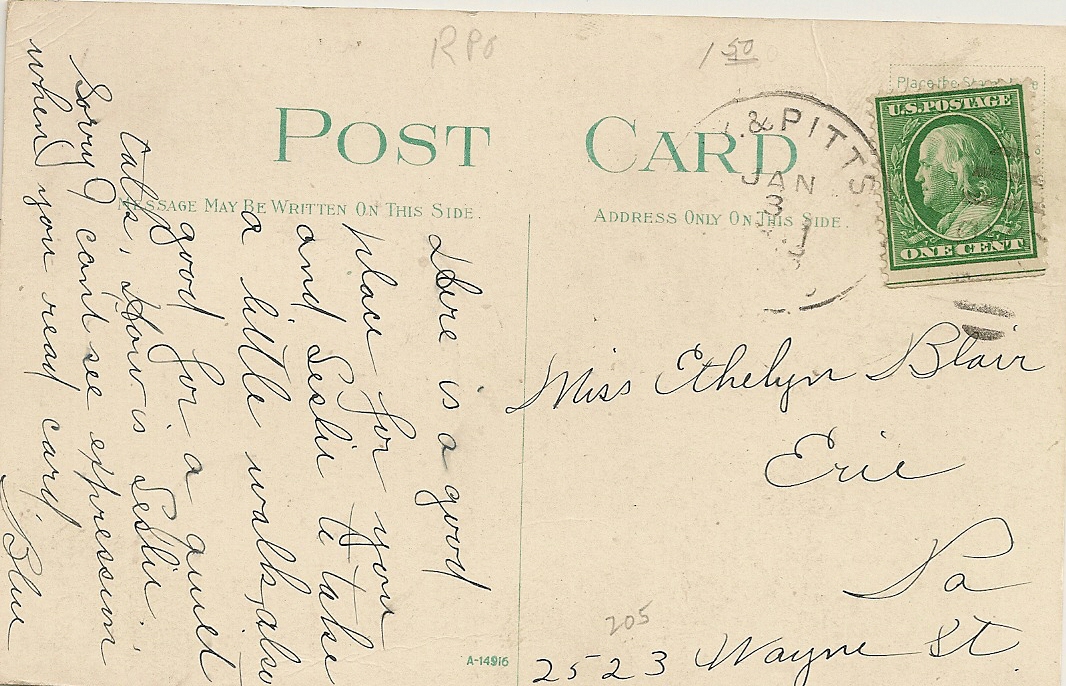 RPO
1 50
Place the Stamp Here
POST CARD
U.S. POSTAGE
ONE CENT
. & PITTS
JAN
3
MESSAGE MAY BE WRITTEN ON THIS SIDE.
ADDRESS ONLY ON THIS SIDE.
Here is a good
place for you
and Leslie to take
a little walk, also
good for a quiet
talk. How is Leslie.
Sorry I can't see expression
when you read card.
Blue
Miss Ethelyn Blair
Erie
Pa
205
2523 Wayne St.
A-14916